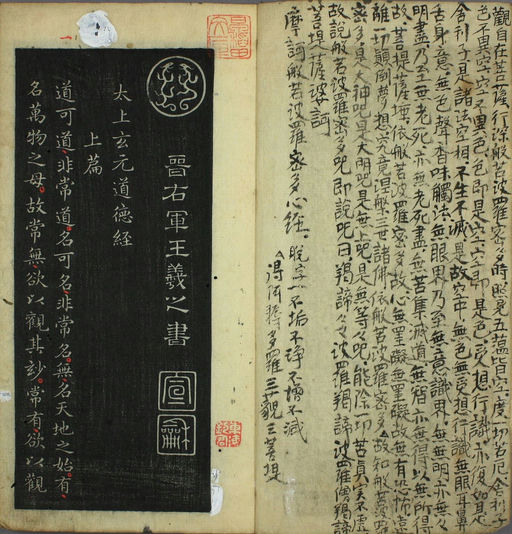 觀自在菩薩行深般若波羅密多時照見五蘊皆空度一切苦厄舍利子
色不異空空不異色色即是空空即是色受想行識亦復如是
舍利子是諸法空相不生不滅是故空中無色無受想行識無眼耳鼻
舌身意無色聲香味觸法無眼界乃至無意識界無無明亦無無
明盡乃至無老死亦無老死盡無苦集滅道無智亦無得以無所得
故菩提薩埵依般若波羅密多故心無罣礙無罣礙故無有恐怖遠
離一切顛倒夢想究竟涅槃三世諸佛依般若波羅密多故知般若波羅
密多是大神呪是大明呪是無上呪是無等々呪能除一切苦真實不虛
故說般若波羅密多呪即說呪曰揭諦々々波羅揭諦波羅僧揭諦
菩提薩婆訶
摩訶般若波羅密多心經 脫字一不垢不淨不增不減
得阿耨多羅三藐三菩提
晉右軍王羲之書
宣
龢
太上玄元道德經
上篇
道可道非常道名可名非常名無名天地之始有
名萬物之母故常無欲以觀其妙常有欲以觀